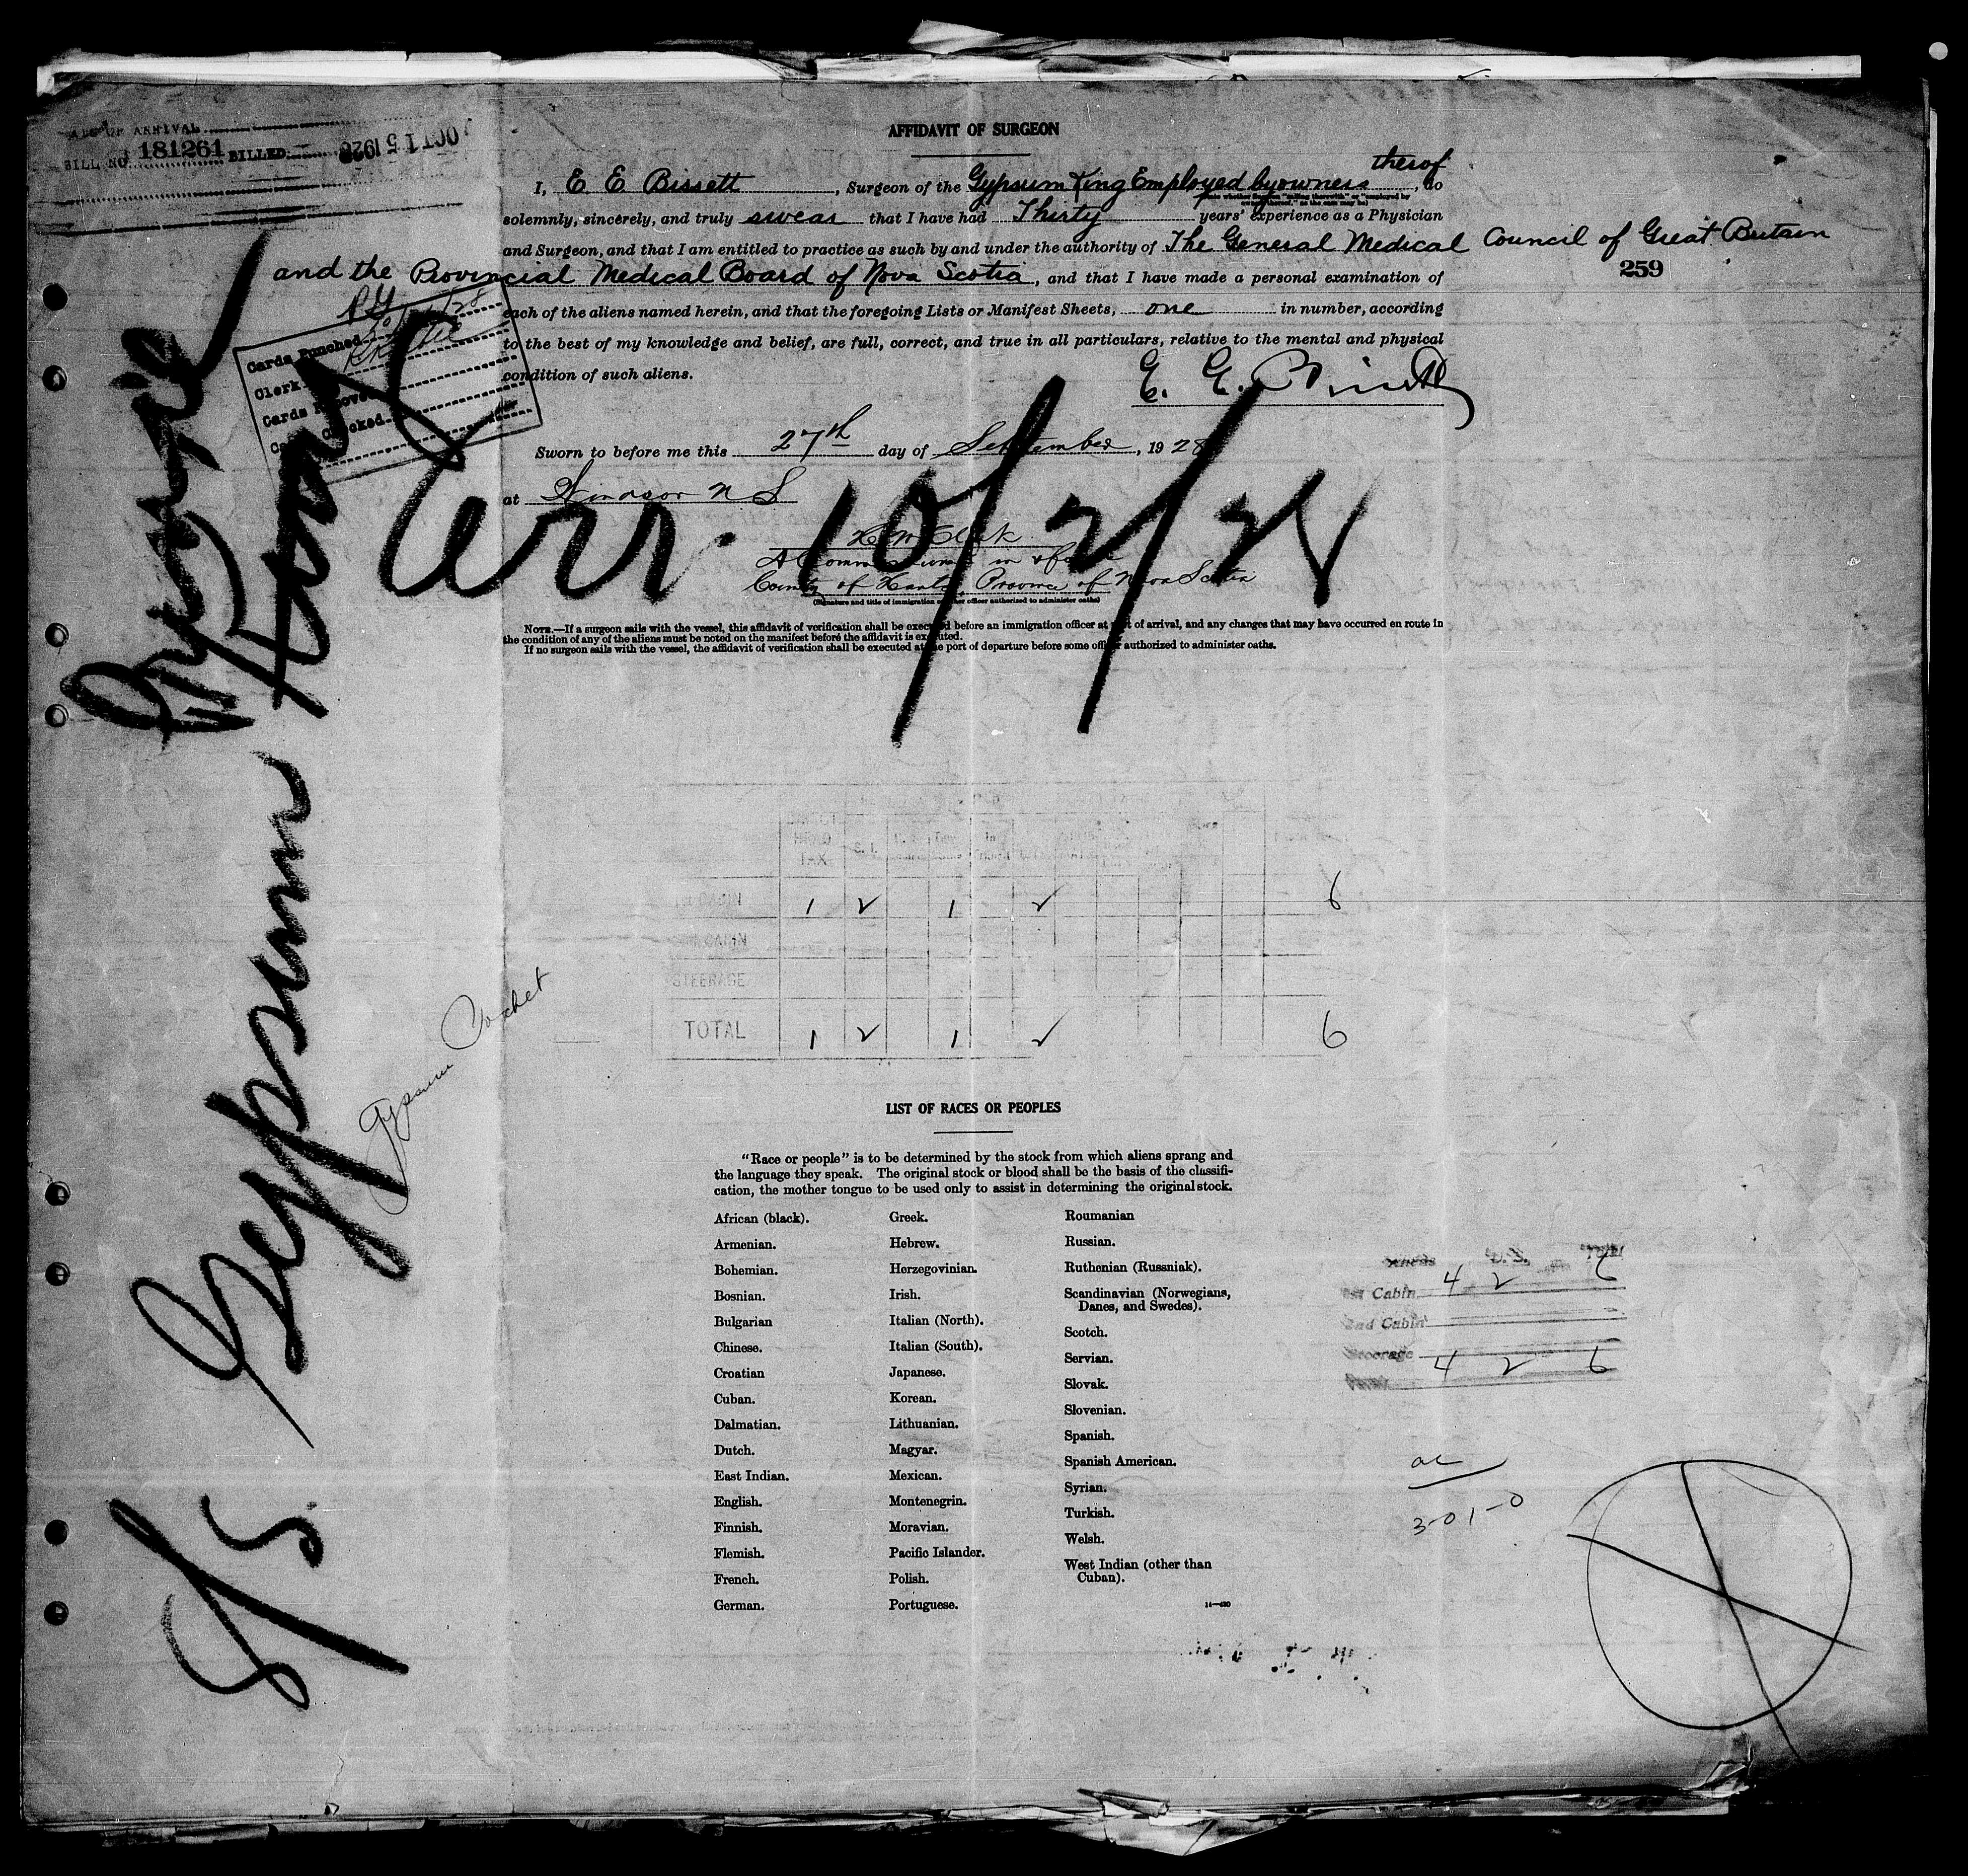 AFFIDAVIT OF SURGEON
ARRIVAL
BILL NO. 181261 BILLED OCT 15 1928
therof
I, E. E Bissett, Surgeon of the Gypsum King Employed by owners, do
solemnly, sincerely, and truly swear that I have had Thirty years' experience as a Physician
and Surgeon, and that I am entitled to practice as such by and under the authority of The General Medical Council of Great Britain
and the Provincial Medical Board of Nova Scotia, and that I have made a personal examination of
259
each of the aliens named herein, and that the foregoing Lists or Manifest Sheets, one in number, according
to the best of my knowledge and belief, are full, correct, and true in all particulars, relative to the mental and physical
condition of such aliens.
E. E. Bissett
Cards Punched
Clerk
Sworn to before me this 27th day of September, 1928
at Windsor N S
Arr. 10/2/28
County of Hants, Province of Nova Scotia
(Signature and title of immigration or other officer authorized to administer oaths)
NOTE.—If a surgeon sails with the vessel, this affidavit of verification shall be executed before an immigration officer at port of arrival, and any changes that may have occurred en route in
the condition of any of the aliens must be noted on the manifest before the affidavit is executed.
If no surgeon sails with the vessel, the affidavit of verification shall be executed at the port of departure before some officer authorized to administer oaths.
S/S Gypsum
Gypsum Packet
HEAD
TAX
S. I.
1 2 1 6
CABIN
STEERAGE
TOTAL 1 2 1 6
LIST OF RACES OR PEOPLES
"Race or people" is to be determined by the stock from which aliens sprang and
the language they speak. The original stock or blood shall be the basis of the classifi-
cation, the mother tongue to be used only to assist in determining the original stock.
African (black). Greek. Roumanian
Armenian. Hebrew. Russian.
Bohemian. Herzegovinian. Ruthenian (Russniak).
Bosnian. Irish. Scandinavian (Norwegians,
Danes, and Swedes).
Bulgarian Italian (North). Scotch.
Chinese. Italian (South). Servian.
Croatian Japanese. Slovak.
Cuban. Korean. Slovenian.
Dalmatian. Lithuanian. Spanish.
Dutch. Magyar. Spanish American.
East Indian. Mexican. Syrian.
English. Montenegrin. Turkish.
Finnish. Moravian. Welsh.
Flemish. Pacific Islander. West Indian (other than
Cuban).
French. Polish.
German. Portuguese.
Aliens U.S. Total
1st Cabin 4 2 6
2nd Cabin
Steerage
4 2 6
3-01-0